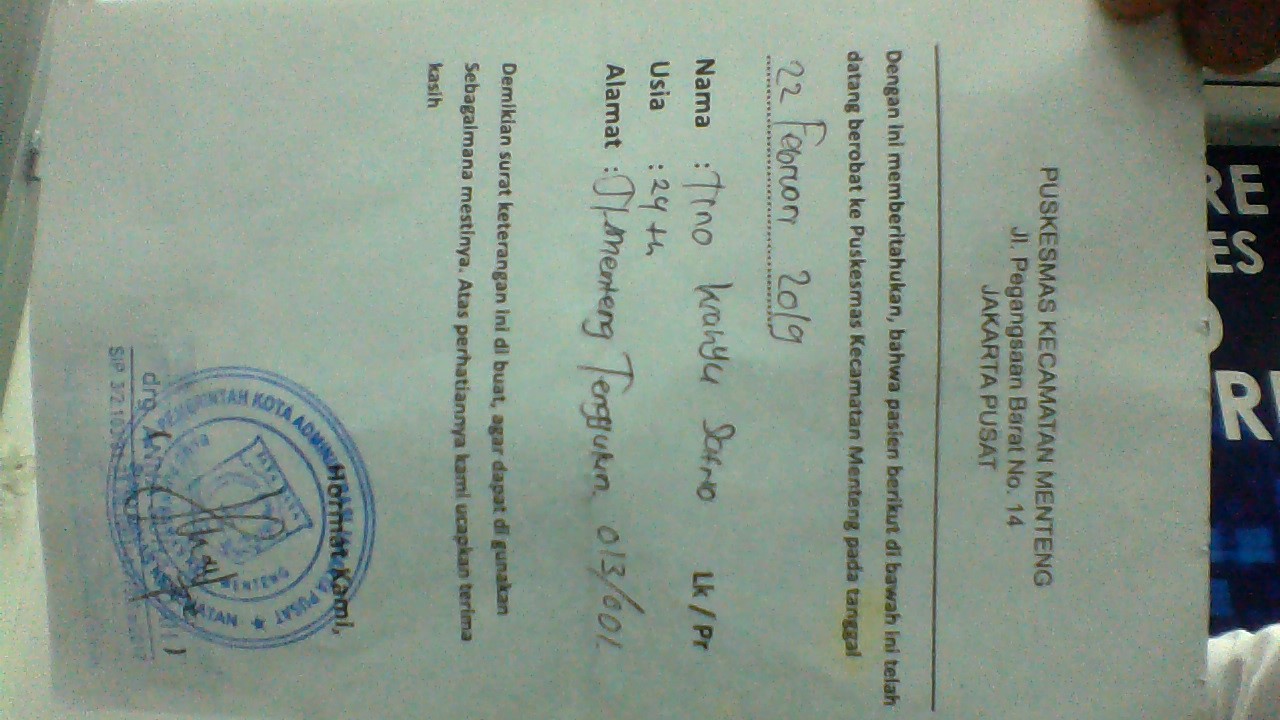 RE
ES
R
PUSKESMAS KECAMATAN MENTENG
Jl. Pegangsaan Barat No. 14
JAKARTA PUSAT
Dengan ini memberitahukan, bahwa pasien berikut di bawah ini telah
datang berobat ke Puskesmas Kecamatan Menteng pada tanggal
22 Februari 2019
Nama : Tino Wahyu Lk / Pr
Usia : 24 th
Alamat : Jl. Menteng 013/001.
Demikian surat keterangan ini di buat, agar dapat di gunakan
Sebagaimana mestinya. Atas perhatiannya kami ucapkan terima
kasih
Hormat Kami,
PEMERINTAH KOTA ADMINISTRASI JAKARTA PUSAT
JAYA RAYA
drg.
SIP